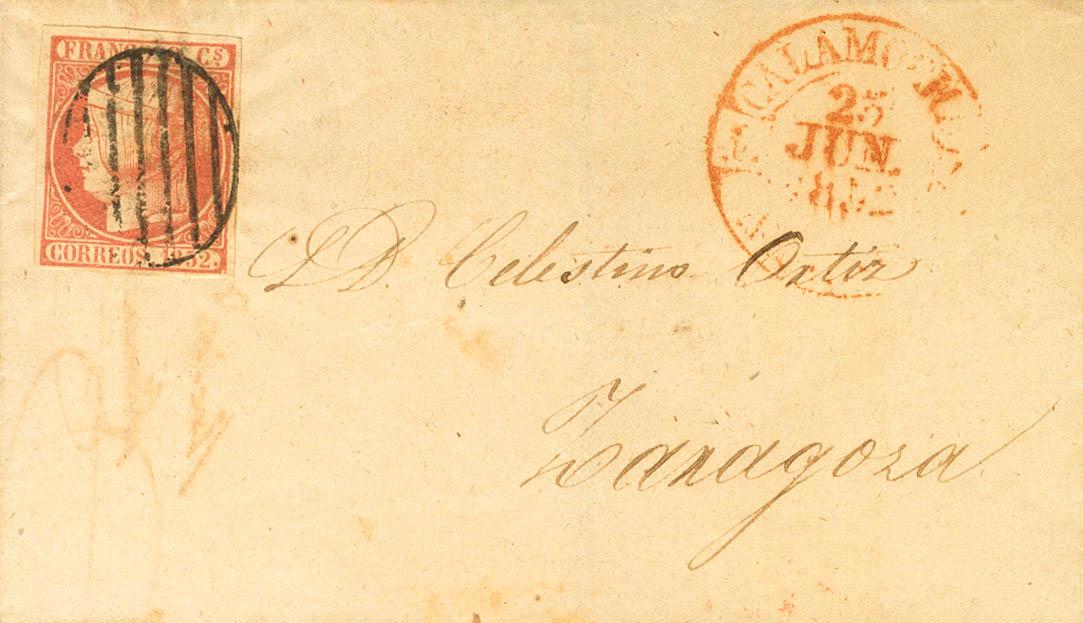 FRANCO Cs
CORREOS. 1852.
CALAMOCHA
25
JUN.
1852
D. Celestino Ortiz
Zaragoza